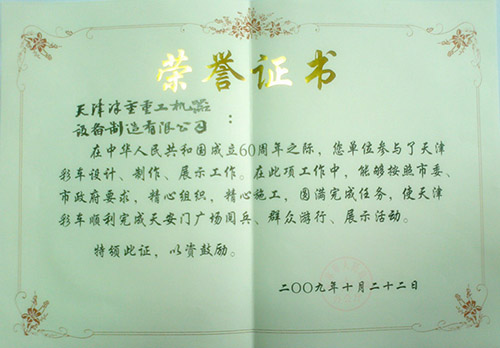 荣誉证书
天津津重重工机器
设备制造有限公司：
在中华人民共和国成立60周年之际，您单位参与了天津
彩车设计、制作、展示工作。在此项工作中，能够按照市委、
市政府要求，精心组织，精心施工，圆满完成任务，使天津
彩车顺利完成天安门广场阅兵、群众游行、展示活动。
特颁此证，以资鼓励。
二〇〇九年十月二十二日